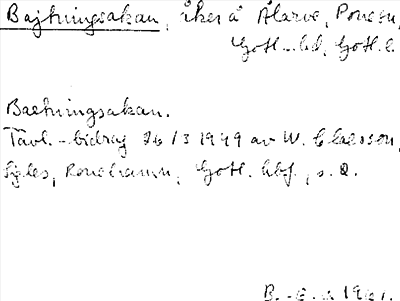 Bajtningsakan, åker å Ålarve, Rone sn,
Gotl. ..., Gotl. l.
Baetningsakan.
Tävl.-bidrag 26/3 1949 av W. Claesson,
Sigles, Ronehamn, Gotl. , s. 2.
B. 1961.